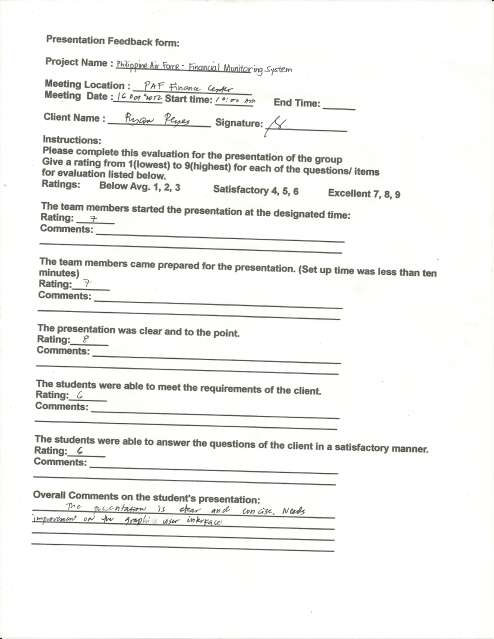 Presentation Feedback form:
Project Name : Philippine Air Force - Financial Monitoring System
Meeting Location : PAF Finance Center
Meeting Date : 16 Oct 2012 Start time: 10:00 AM End Time:
Client Name : Reyes Signature:
Instructions:
Please complete this evaluation for the presentation of the group
Give a rating from 1(lowest) to 9(highest) for each of the questions/ items
for evaluation listed below.
Ratings: Below Avg. 1, 2, 3 Satisfactory 4, 5, 6 Excellent 7, 8, 9
The team members started the presentation at the designated time:
Rating: 7
Comments:
The team members came prepared for the presentation. (Set up time was less than ten
minutes)
Rating: 7
Comments:
The presentation was clear and to the point.
Rating: 8
Comments:
The students were able to meet the requirements of the client.
Rating: 6
Comments:
The students were able to answer the questions of the client in a satisfactory manner.
Rating: 6
Comments:
Overall Comments on the student's presentation:
The presentation is clear and concise. Needs
improvement on the graphic user interface